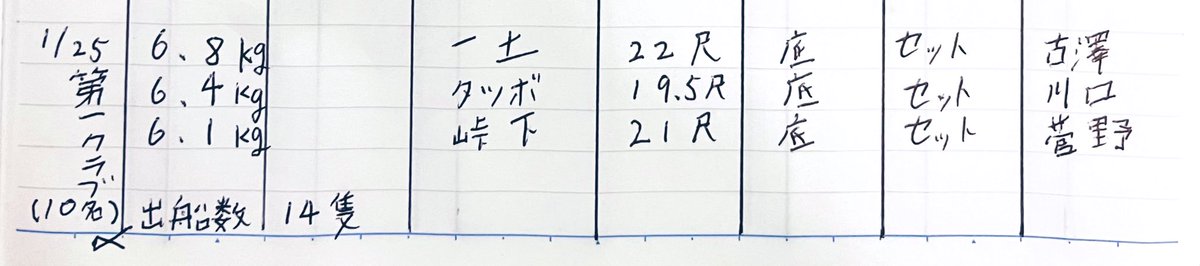 1/25 6.8kg 一土 22尺 底 セット 古澤
第一クラブ 6.4kg タツボ 19.5尺 底 セット 川口
6.1kg 峠下 21尺 底 セット 菅野
(10名) 出船数 14隻
〆